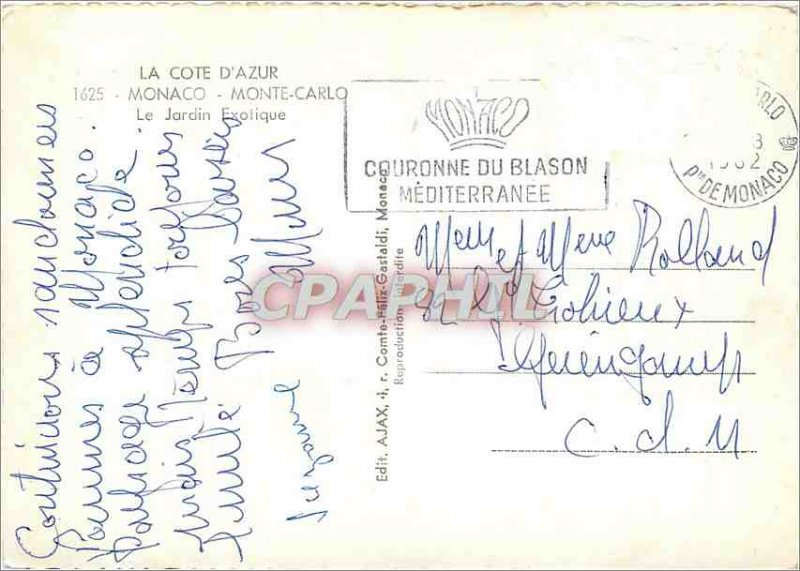 LA COTE D'AZUR
1625 - MONACO - MONTE-CARLO
Le Jardin Exotique
MONACO
COURONNE DU BLASON
MÉDITERRANEE
RLO
1962
Pté DE MONACO
Edit. AJAX, 4, r. Comte-Félix-Gastaldi, Monaco
Reproduction interdite
CPAPHIL
Continuons randonnées
sommes à Monaco.
splendide
temps toujours
Bons baisers
Suzanne
et Mme Rolland
Guingamp
C. d. N